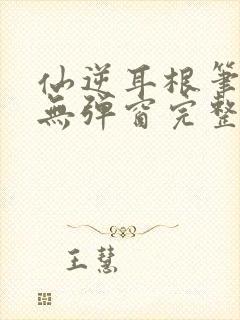 仙逆耳根筆
無彈窗完整
王慧